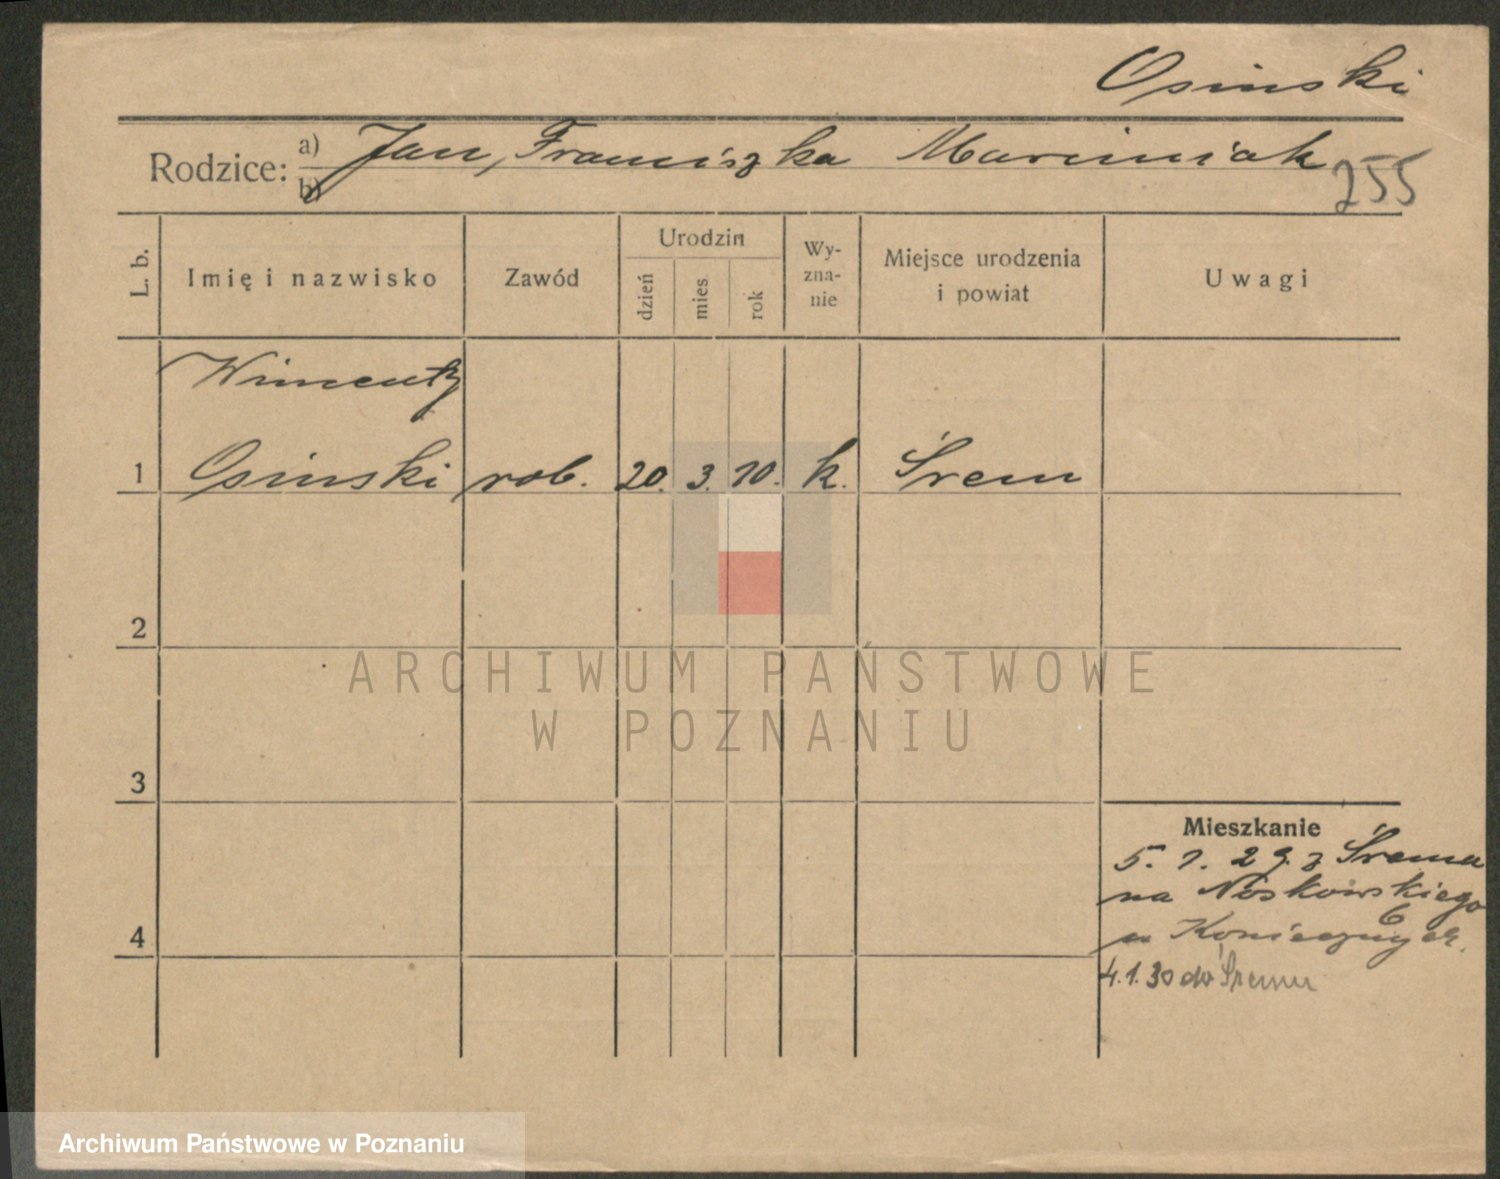 Osinski
Rodzice: a) Jan, Franciszka Marciniak
b)
255
L. b.
Imię i nazwisko
Zawód
Urodzin
dzień
mies.
rok
Wy-
zna-
nie
Miejsce urodzenia
i powiat
Uwagi
Wincenty
1 Osinski rob. 20. 3. 10. k. Śrem
2
ARCHIWUM PAŃSTWOWE
W POZNANIU
3
Mieszkanie
5. 1. 29. z Śrema
na Noskowskiego
6
4
u Koniecznych.
4.1.30 do Śremu
Archiwum Państwowe w Poznaniu